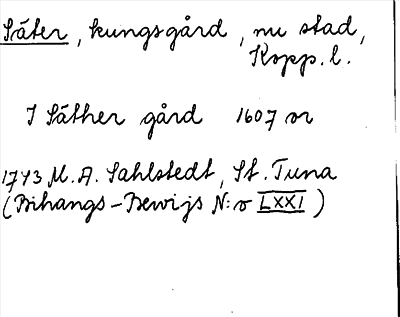 Säter, kungsgård, nu stad,
Kopp. l.
I Säther gård 1607 or
1743 M. A. Sahlstedt, St. Tuna
(Bihangs-Bewijs N:o LXXI)